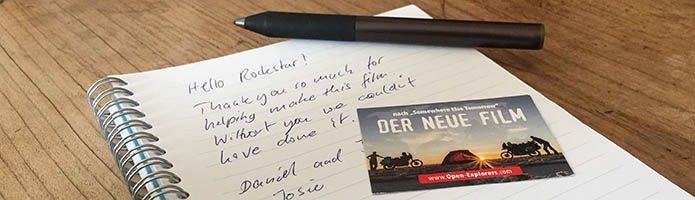 Hello Rockstar!
Thank you so much for
helping make this film.
Without you we couldn't
have done it.
Daniel and
Josie
nach „Somewhere Else Tomorrow"
DER NEUE FILM
www.Open-Explorers.com